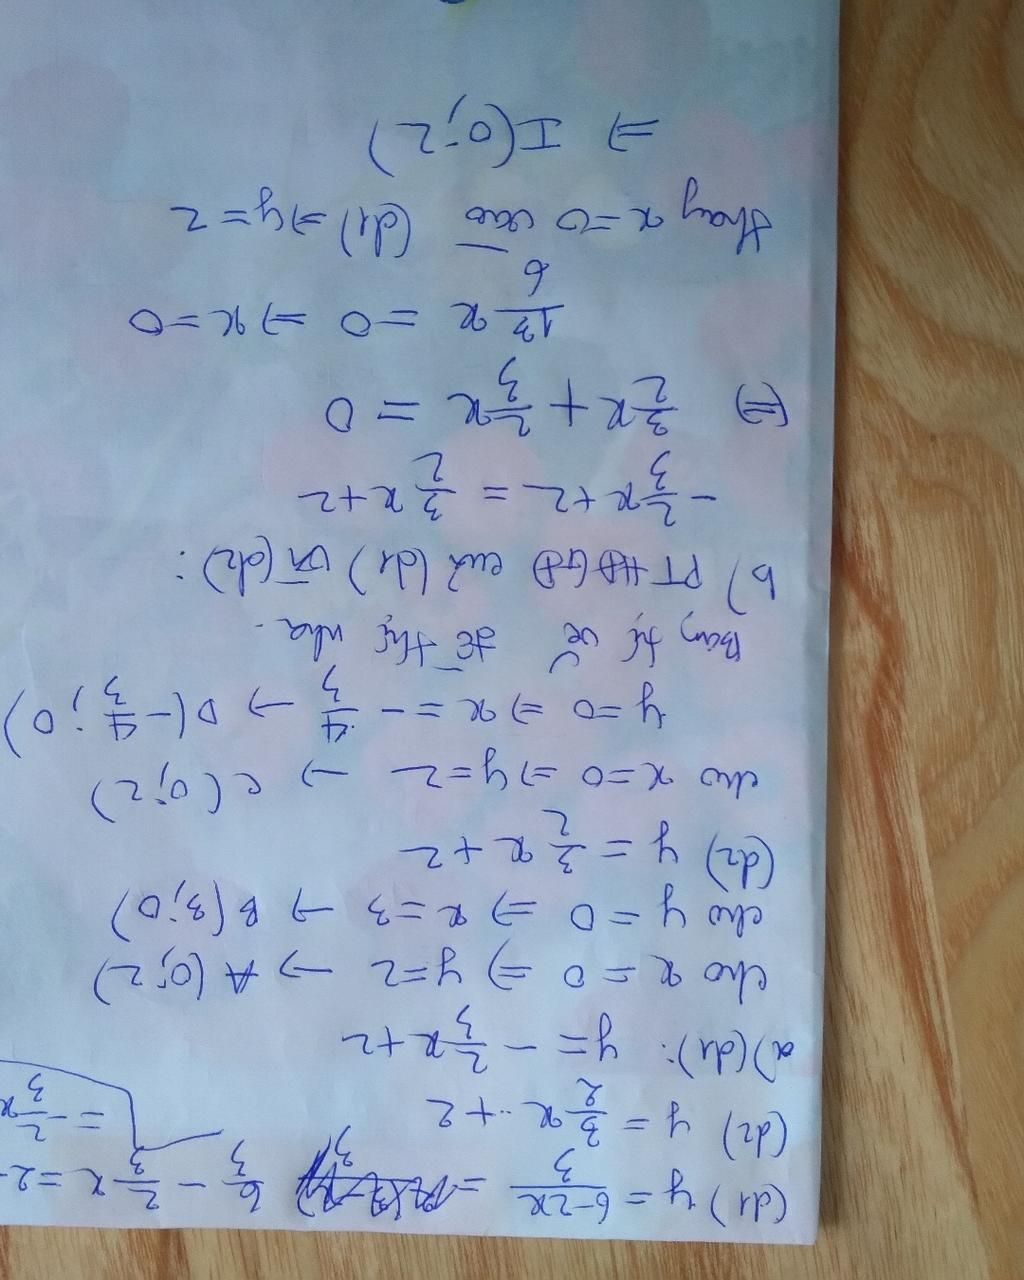 (d1) y = \frac{6-2x}{3} = \frac{6}{3} - \frac{2}{3}x = 2-
= -\frac{2}{3}x
(d2) y = \frac{3}{2}x + 2
a) (d1): y = -\frac{2}{3}x+2
cho x = 0 => y=2 → A (0;2)
cho y = 0 => x=3 → B(3;0)
(d2) y = \frac{3}{2}x + 2
cho x=0 => y=2 → C(0;2)
y=0 => x = -\frac{4}{3} → D(-\frac{4}{3};0)
Bạn tự vẽ đồ thị nha.
b) PT HĐGĐ của (d1) và (d2):
-\frac{2}{3}x+2 = \frac{3}{2}x+2
(=) \frac{3}{2}x + \frac{2}{3}x = 0
\frac{13}{6}x = 0 => x=0
thay x=0 vào (d1) => y=2
=> I(0;2)